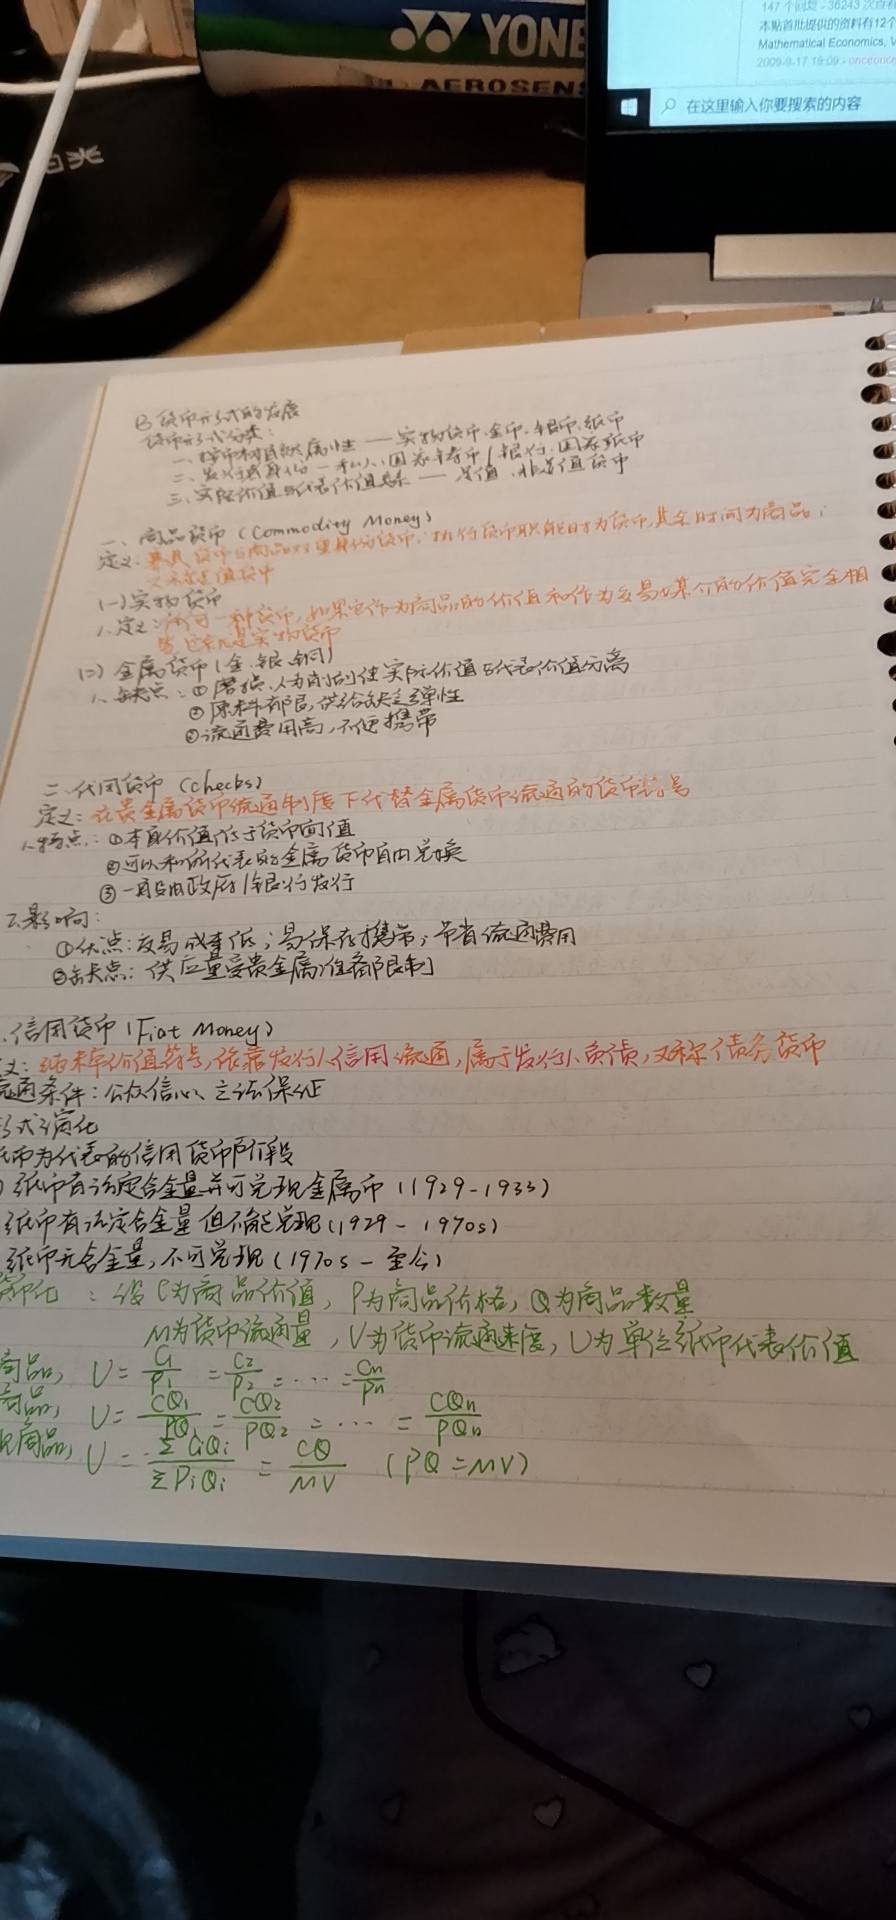 YONE
AEROSENS
147 个回复 - 36243 次查看
本贴首批提供的资料有12个
Mathematical Economics, V
2009-9-17 19:09 - onceonce
在这里输入你要搜索的内容
光
B 货币形式的发展
货币形式分类:
一、按币材自然属性 — 实物货币、金币、银币、纸币
二、发行 — 私人、国家铸币/银行、国家纸币
三、实际价值与代表价值关系 — 足值、非足值货币
一、商品货币 (Commodity Money)
定义: 兼具货币与商品双重身份货币, 执行货币职能时为货币, 其余时间为商品;
又称足值货币
(一) 实物货币
1、定义: 任何一种货币, 如果它作为商品的价值和作为交易媒介的价值完全相
等 它就是实物货币
(二) 金属货币 (金、银、铜)
1、缺点: ① 磨损、人为削刮使实际价值与代表价值分离
② 原料有限, 供给缺乏弹性
③ 流通费用高, 不便携带
二、代用货币 (checks)
定义: 在贵金属货币流通制度下代替金属货币流通的货币符号
1、特点: ①本身价值低于货币面值
②可以和所代表的金属货币自由兑换
③一般由政府/银行发行
2、影响:
①优点: 交易成本低; 易保存携带; 节省流通费用
②缺点: 供应量受贵金属准备限制
、信用货币 (Fiat Money)
义: 纯粹价值符号, 依靠发行人信用流通, 属于发行人负债, 又称债务货币
流通条件: 公众信心、立法保证
形式演化
纸币为代表的信用货币阶段
) 纸币有法定含金量并可兑现金属币 (1929-1933)
纸币有法定含金量但不能兑现 (1929 - 1970s)
纸币无含金量, 不可兑现 (1970s - 至今)
: 设 C为商品价值, P为商品价格, Q为商品数量
M为货币流通量, V为货币流通速度, U为单位纸币代表价值
商品, U = C₁/P₁ = C₂/P₂ = ⋯ = Cn/Pn
商品, U = CQ₁/PQ₁ = CQ₂/PQ₂ = ⋯ = CQn/PQn
商品, U = ΣCᵢQᵢ/ΣPᵢQᵢ = CQ/MV (PQ = MV)